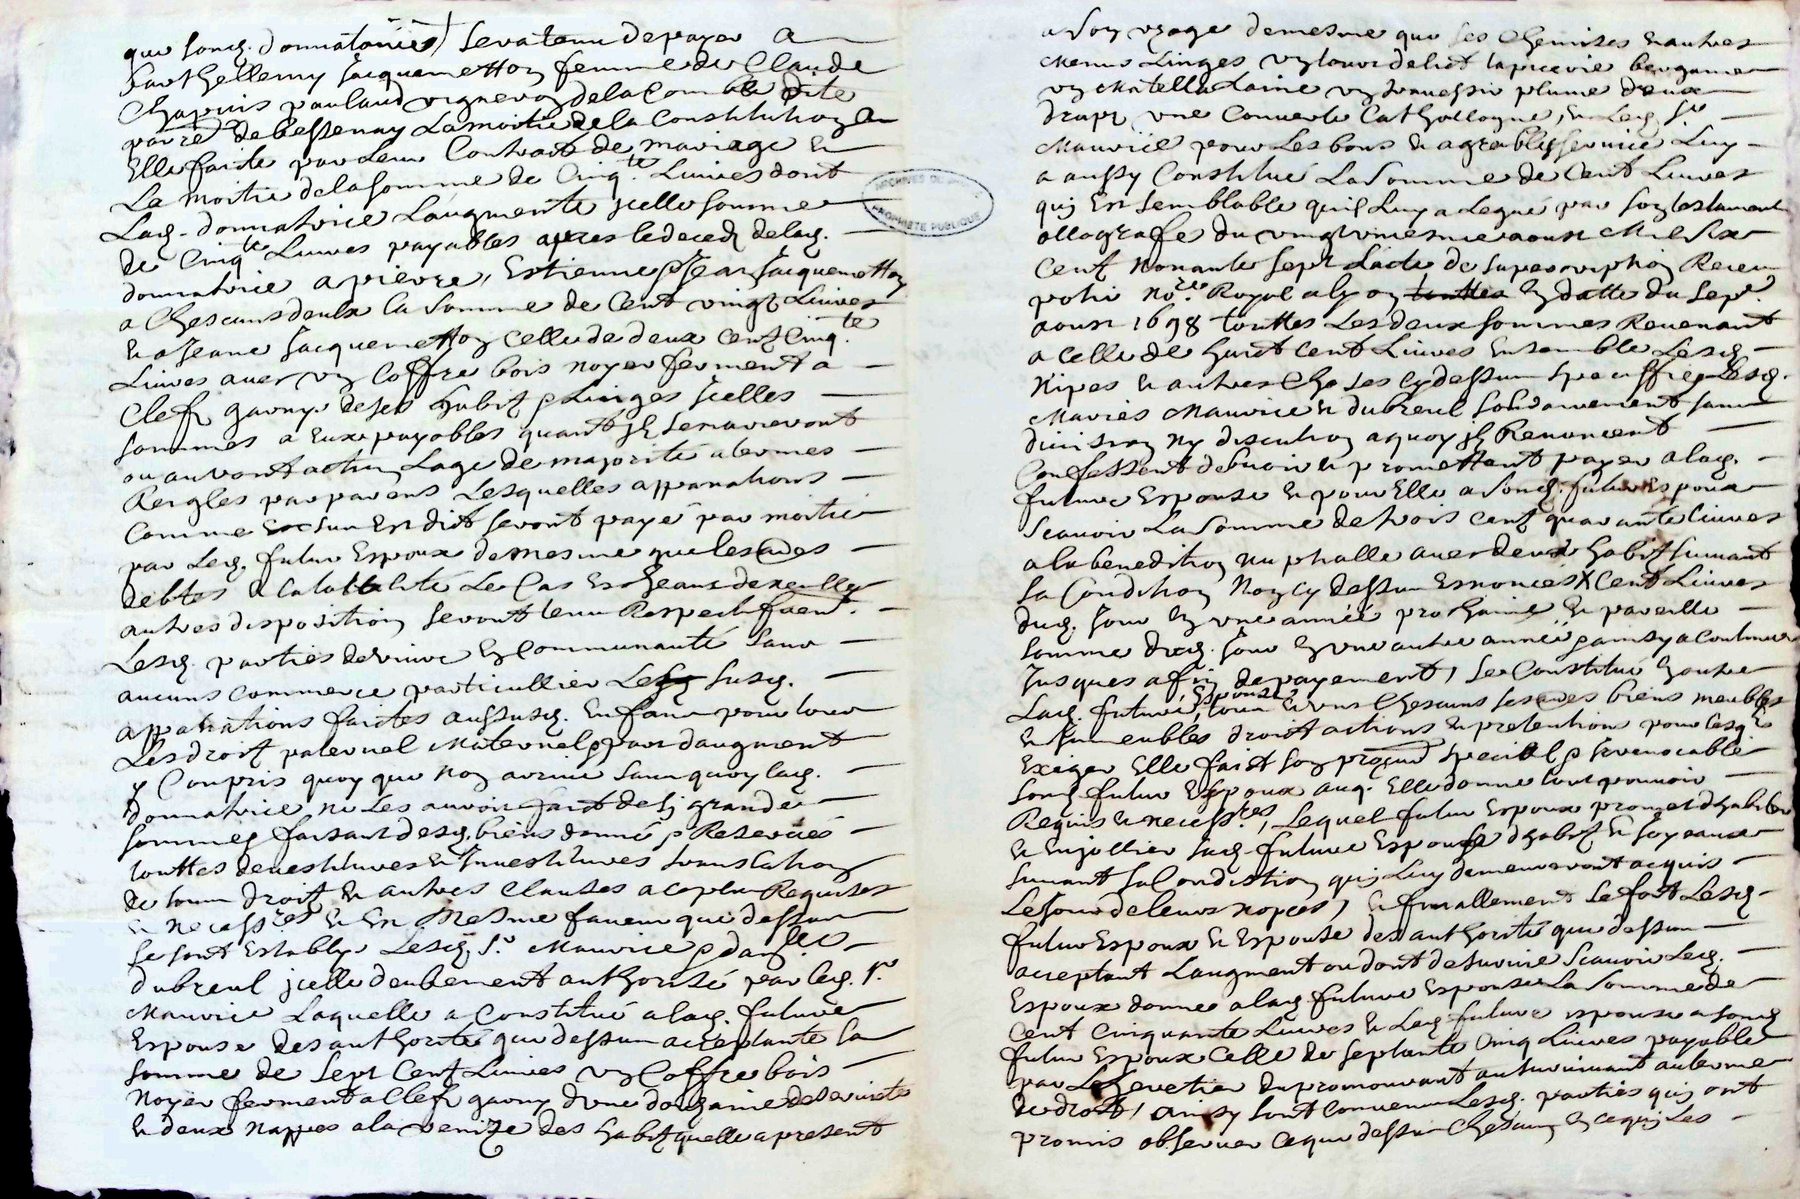 que sond. donnataires) sera tenu de payer a
Barthellemy Jacquemetton femme de Claude
Chapuis paulaud vigneron de la Comble dite
parre. de Bessenay La moitié de la Constitution a
Elle faite par leur Contract de mariage et
La moitié de la somme de Cinqte. Livres dont
Lad. donnatrice L'augmente icelle somme
de Cinqte Livres payables apres le deced de lad.
donnatrice a pierre, Estienne & Jean Jacquemetton
a Chescuns deulx la somme de Cent vingt Livres
et a Jeanne Jacquemetton celle de deux cent Cinqte.
Livres avec un Coffre bois noyer ferment a
Clef garny de ses habitz & Linges icelles
sommes a eux payables quant ilz se marieront
ou auront attin L'age de majorité a termes
Reigles par parens Lesquelles apparations
Comme sus Est dit seront payé par moitié
par Led. futur Espoux de mesme que les
debtes a la totalité Le Cas Escheant de nulle
autres disposition seront tenu Respectifvent.
Lesd. parties de vivre en Communauté sans
aucuns commerce particullier Les susd.
apparations faictes aussusd. Enfans pour tous
Les droitz paternel Maternel & par d'augment
y Compris quoy que non arrivé sans quoy lad.
donnatrice ne Les auroit fait de si grande
sommes faisant desd. biens donné & Reservés
touttes devestitures et Investitures translation
de tous droitz et autres Clauses a ce plus Requises
et necessres et En Mesme faveur que dessus
se sont Establys Lesd. Sr. Maurice & dam.lle
dubreul icelle deubement authorisé par led. Sr.
Maurice Laquelle a Constitué a lad. future
Espouse des authorité que dessus acceptante la
somme de Sept Cent Livres un Coffre bois
Noyer ferment a Clef garny d'une douzaine de serviete
et deux nappes a la venize des habitz quelle a present
a son usage de mesme que ses Chemises et autres
Menus Linges un tour de lict tapicerie bergame
un Matella Laine un traversin plume deux
drapz une Couverte Cathollogne, et Led. Sr.
Maurice pour Les bons et agreables service Luy
a aussy Constitué La Somme de Cent Livres
qui Est semblable quil Luy a Legué par son testament
ollografe du vingt uniesme aoust Mil Six
Cent Nonante Sept L'acte de supscription Receu
par Nore. Royal a lyon en datte du Sepe.
aoust 1698 touttes Les deux sommes Revenant
a celle de huict Cent Livres Ensemble Lesd.
Nipes et autres Choses Cy dessus specifies Lesd.
Mariés Maurice et dubreul sollidairement sans
division ny discution a quoy ilz Renoncent
Confessent debvoir et promettent payer a lad.
future Espouse et pour Elle a sond. futur Espoux
Scavoir La Somme de trois cent quarante livres
a la benediction nuptialle avec deux habitz suivant
sa Condition Non Cy dessus Enoncés X Cent Livres
dud. jour en une année prochaine et pareille
somme dud. jour en une autre année & ainsy a continuer
Jusques a fin de payement, se Constitué en outre
Lad. future, Espouse tous et uns Chescuns ses biens meubles
et Immeubles droict actions et pretentions pour lesq.
Exiger Elle faict son procur special & irrevocable
sond. futur Espoux auq. Elle donne tout pouvoir
Requis et necessres, Lequel futur Espoux promet d'habiller
et Enjollier sad. future Espouse d'habitz et joyeaux
suivant sa Condition qui Luy demeureront acquis
Le jour de leurs nopces, et finallement se sont Lesd.
futur Espoux et Espouse des authorité que dessus
acceptant L'augment ou dont de survie Scavoir Led.
Espoux donne a lad. future Espouse La Somme de
Cent Cinquante Livres et Lad future espouse a sond
futur Espoux Celle de Septante Cinq Livres payable
par Les heretier du premourant au survivant au terme
de droit, ainsy sont Convenu Lesd. parties qui ont
promis observer ce que dessus Chescun en ce qui Les